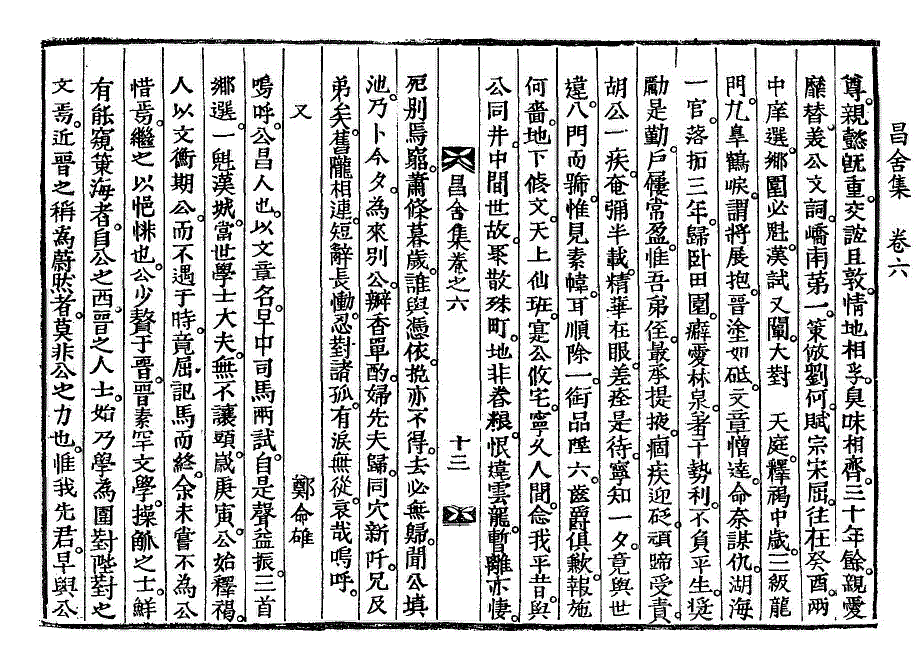 昌舍集　卷六
尊。親懿旣重。交誼且敦。情地相孚。臭味相齊。三十年餘。親愛
靡替。美公文詞。嶠南第一。策倣劉何。賦宗宋屈。往在癸酉。兩
中庠選。鄕圍必魁。漢試又闡。大對　天庭。釋褐中歲。三級龍
門。九臯鶴唳。謂將展抱。晉塗如砥。文章憎達。命奈謀仇。湖海
一官。落拓三年。歸卧田園。癖愛林泉。著干勢利。不負平生。奬
勵是勤。戶屨常盈。惟吾弟侄。最承提掖。痼疾迎砭。頑啼受責。
胡公一疾。奄彌半載。精華在眼。差痊是待。寧知一夕。竟與世
違。八門而號。惟見素幃。耳順除一。銜品陞六。齒爵俱歉。報施
何嗇。地下修文。天上仙班。寔公攸宅。寧久人間。念我平昔。與
公同井。中間世故。聚散殊町。地非眷粮。恨違雲龍。暫離亦悽。
昌舍集卷之六　十三
死别焉窮。蕭條暮歲。誰與憑依。挽亦不得。去必無歸。聞公塡
池。乃卜今夕。爲來别公。瓣香單酌。婦先夫歸。同穴新阡。兄及
弟矣。舊隴相連。短辭長慟。忍對諸孤。有淚無從。哀哉嗚呼。
又　鄭命確
嗚呼。公昌人也。以文章名。早中司馬兩試。自是聲益振。三首
鄕選。一魁漢城。當世學士大夫。無不讓頭。歲庚寅。公始釋褐。
人以文衡期公。而不遇于時。竟屈記馬而終。余未嘗不爲公
惜焉。繼之以悒怫也。公少贅于晉。晉素罕文學。操觚之士。鮮
有能窺策海者。自公之西。晉之人士。始乃學爲圍對陛對之
文焉。近晉之稱蔚然者。莫非公之力也。惟我先君。早與公